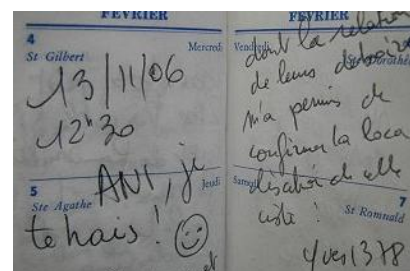 FÉVRIER
4
St Gilbert
Mercredi
13/11/06
12h30
5
Ste Agathe
Jeudi
ANI, je
te hais ! ☺
et
FÉVRIER
Vendredi
dont la relation
de leurs déboires
m'a permis de
confirmer la loca
lisation de elle
ciste !
Samedi
7
St Romuald
Yves1378